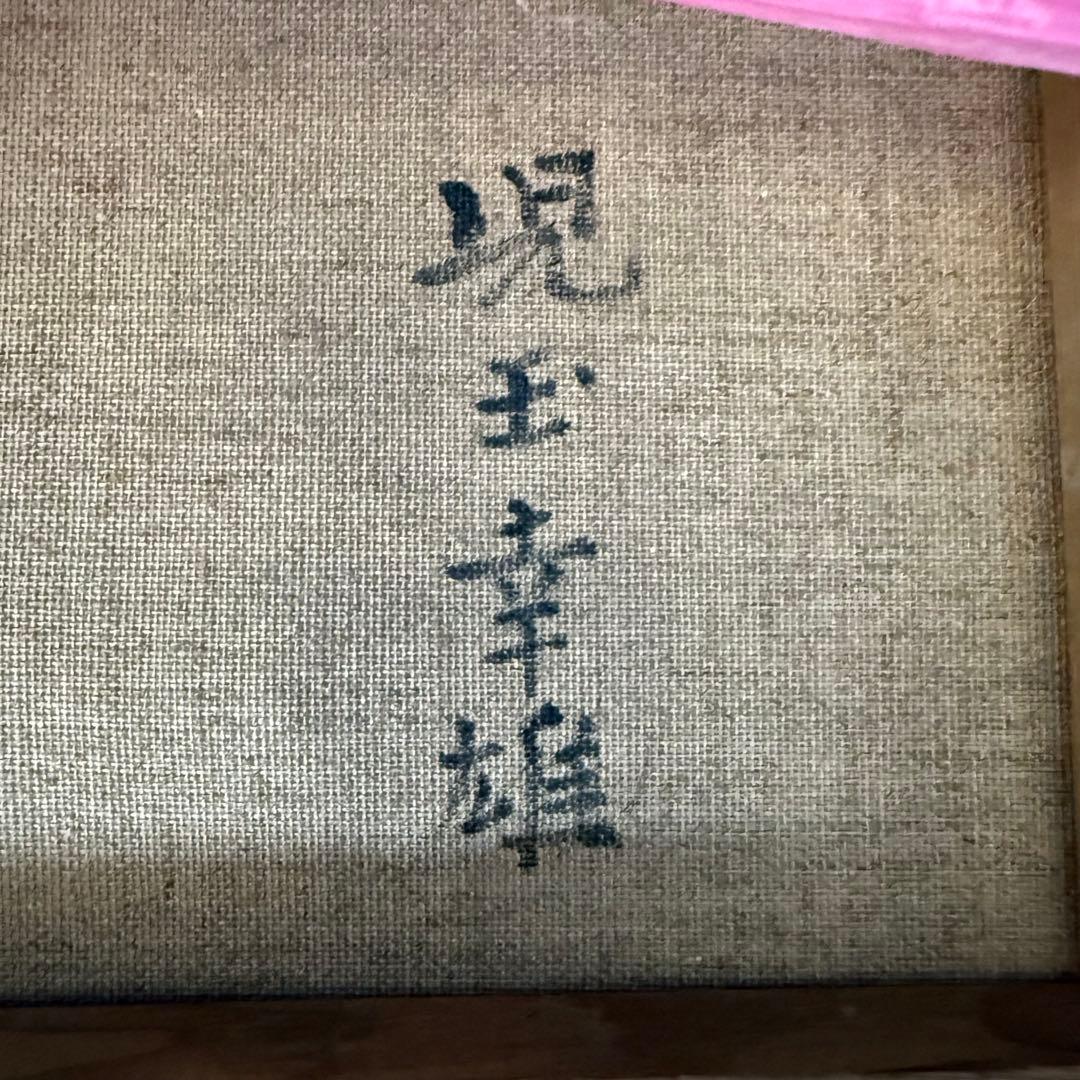 児玉幸雄